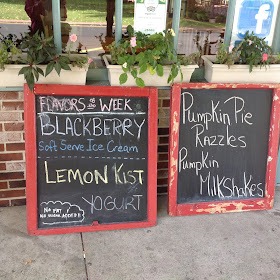 FLAVORS OF THE WEEK
BLACKBERRY
Soft Serve Ice Cream
LEMON KIST
YOGURT
NO FAT
NO SUGAR ADDED!!
Pumpkin Pie
Razzles
Pumpkin
Milkshakes!